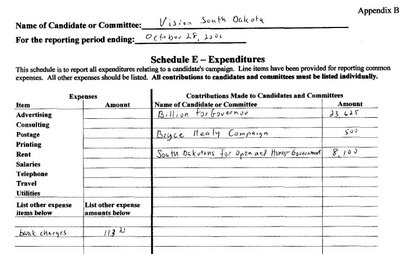 Appendix B
Name of Candidate or Committee: Vision South Dakota
For the reporting period ending: October 28, 2002
Schedule E – Expenditures
This schedule is to report all expenditures relating to a candidate's campaign. Line items have been provided for reporting common
expenses. All other expenses should be listed. All contributions to candidates and committees must be listed individually.
Expenses Contributions Made to Candidates and Committees
Item Amount Name of Candidate or Committee Amount
Advertising Billion for Governor 23,625
Consulting
Postage Bryce Healy Campaign 500
Printing
Rent South Dakotans for Open and Honest Government 8,100
Salaries
Telephone
Travel
Utilities
List other expense List other expense
items below amounts below
bank charges